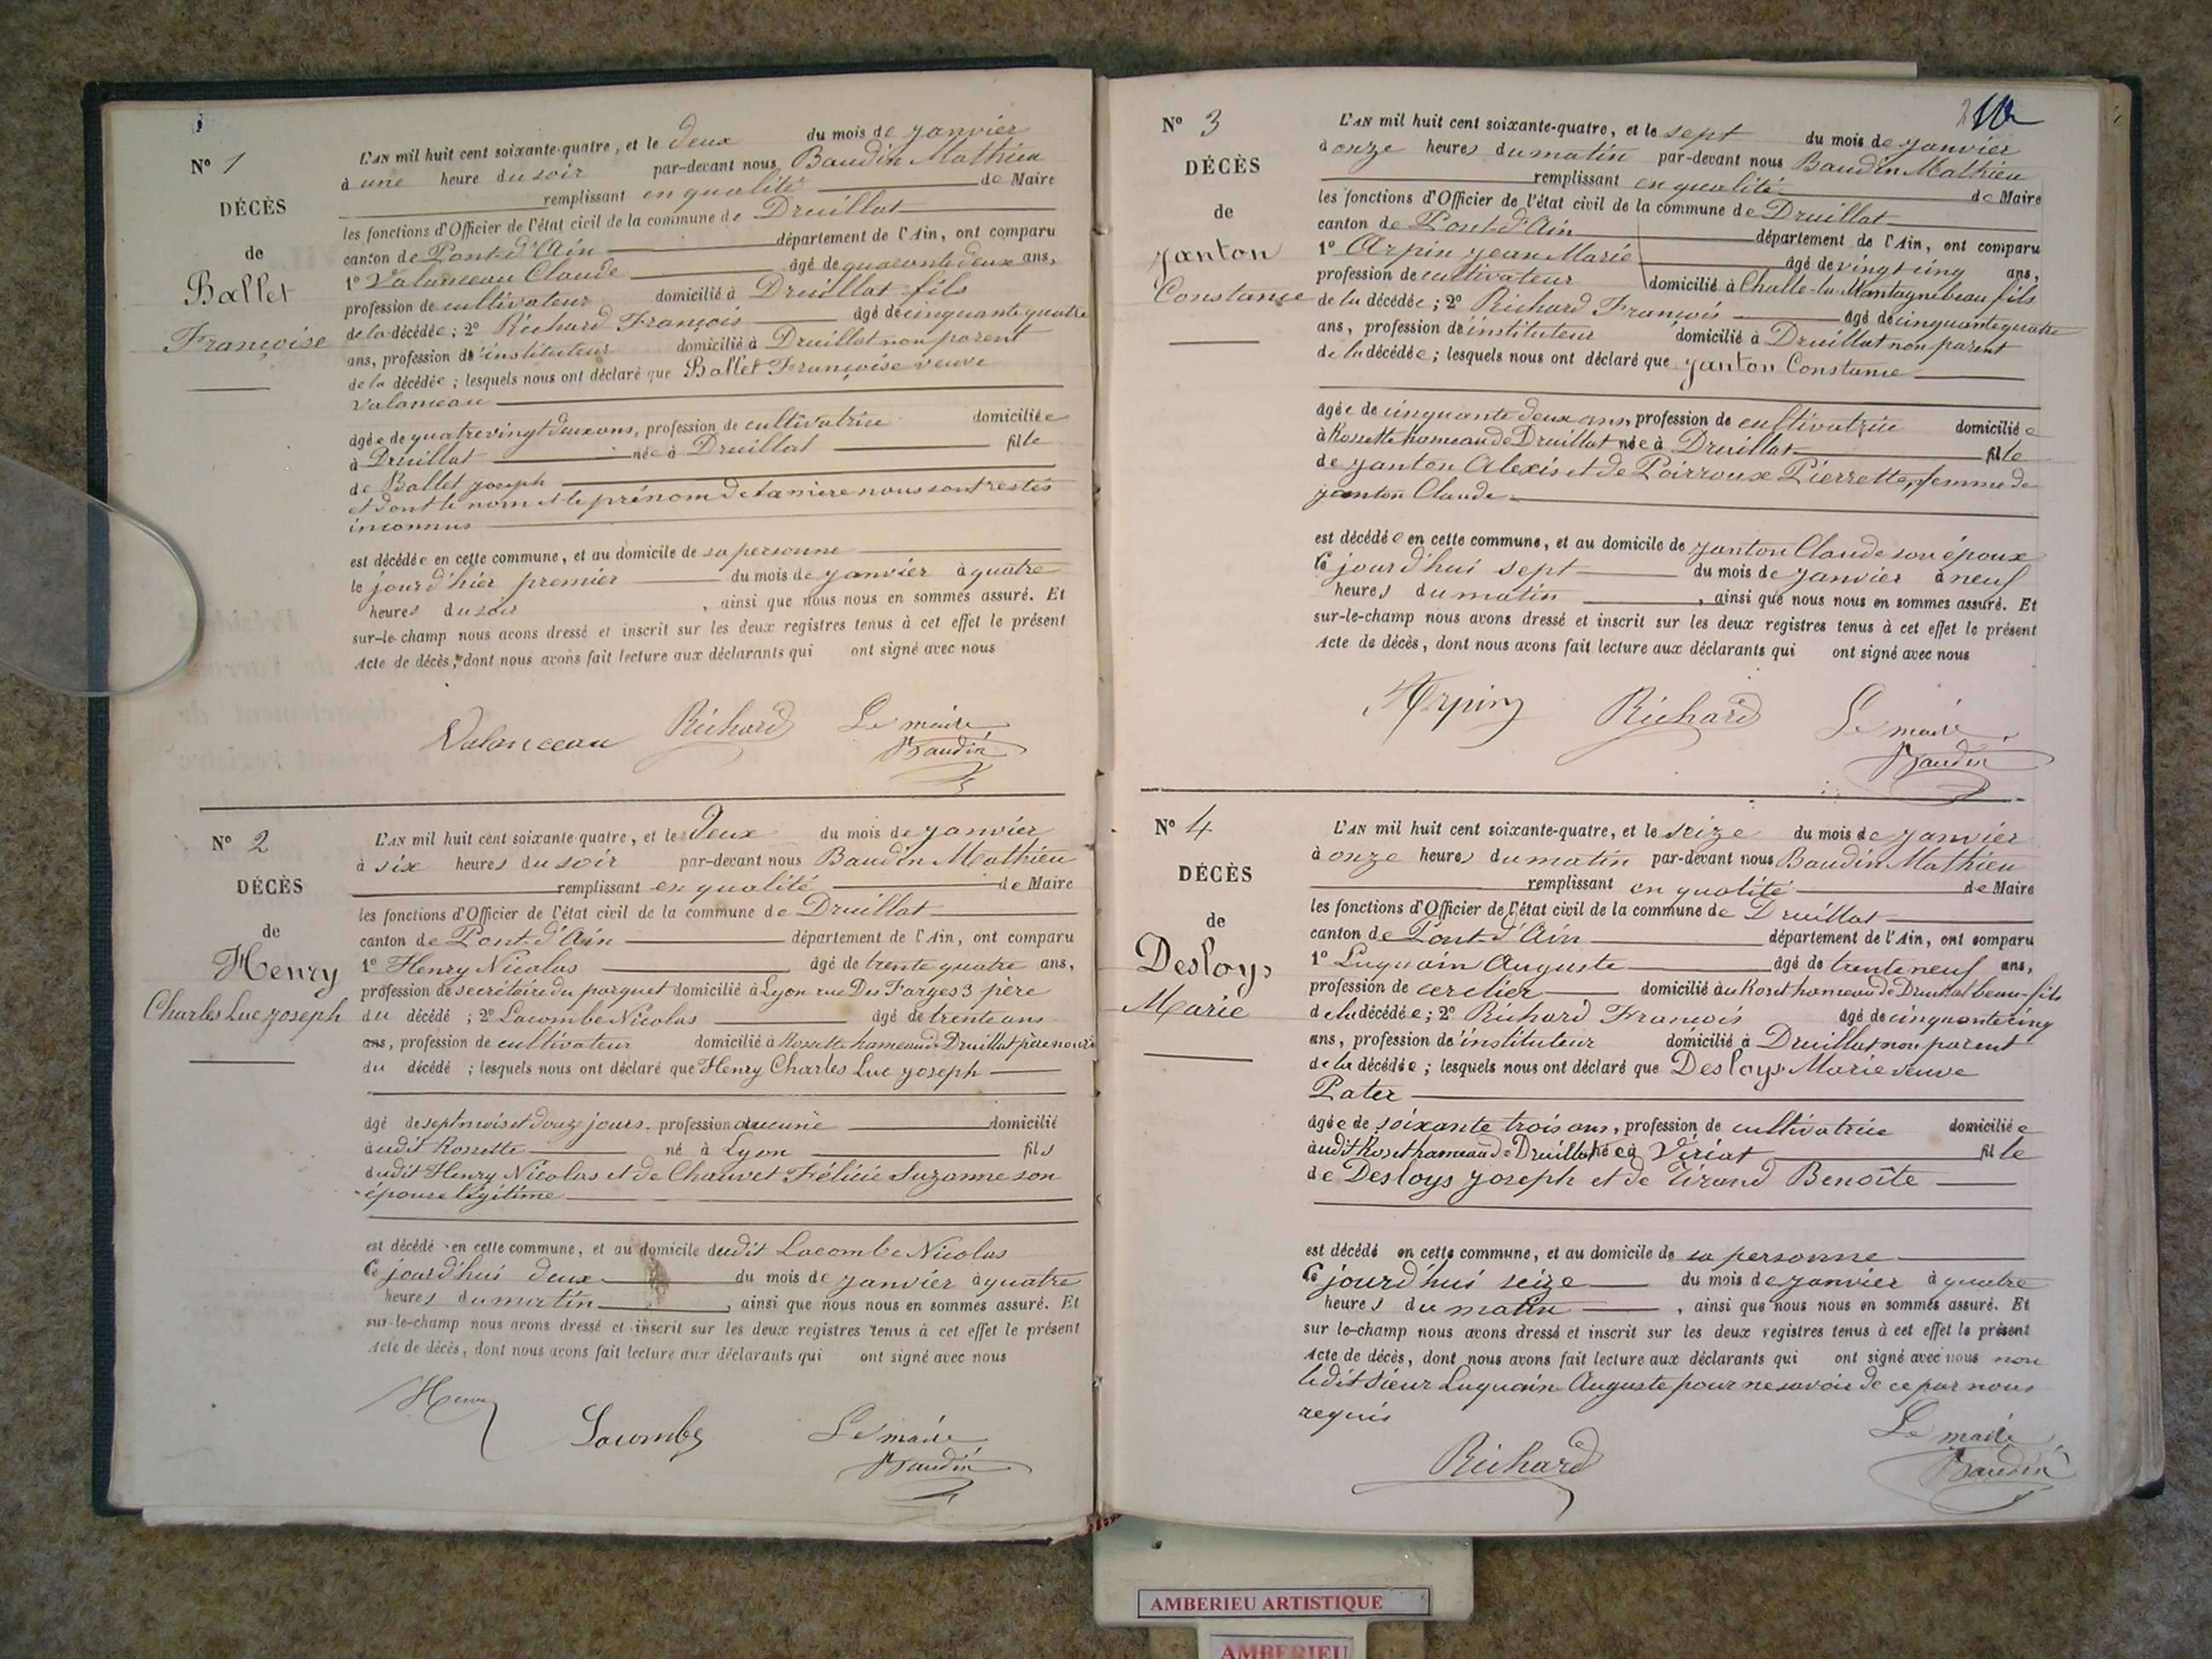 N° 1
DÉCÈS
de
Ballet
Françoise
L'AN mil huit cent soixante-quatre, et le deux du mois de janvier
à une heure du soir par-devant nous Baudin Mathieu
remplissant en qualité de Maire
les fonctions d'Officier de l'état civil de la commune de Druillat
canton de Pont-d'Ain département de l'Ain, ont comparu
1° Valanceau Claude âgé de quarante deux ans,
profession de cultivateur domicilié à Druillat fils
de la décédée ; 2° Richard François âgé de cinquante quatre
ans, profession d'instituteur domicilié à Druillat non parent
de la décédée ; lesquels nous ont déclaré que Ballet Françoise veuve
Valanceau
âgée de quatre vingt deux ans, profession de cultivatrice domiciliée
à Druillat née à Druillat fille
de Ballet joseph
et dont le nom et le prénom de sa mère nous sont restés
inconnus
est décédée en cette commune, et au domicile de sa personne
le jour d'hier premier du mois de janvier à quatre
heures du soir , ainsi que nous nous en sommes assuré. Et
sur-le-champ nous avons dressé et inscrit sur les deux registres tenus à cet effet le présent
Acte de décès, dont nous avons fait lecture aux déclarants qui ont signé avec nous
Valanceau Richard Le maire
Baudin
N° 2
DÉCÈS
de
Henry
Charles Luc joseph
L'AN mil huit cent soixante-quatre, et le Deux du mois de janvier
à six heures du soir par-devant nous Baudin Mathieu
remplissant en qualité de Maire
les fonctions d'Officier de l'état civil de la commune de Druillat
canton de Pont-d'Ain département de l'Ain, ont comparu
1° Henry Nicolas âgé de trente quatre ans,
profession de secrétaire du parquet domicilié à Lyon rue Des Farges 3 père
du décédé ; 2° Lacombe Nicolas âgé de trente ans
ans, profession de cultivateur domicilié à Rossette hameau de Druillat père nourr
du décédé ; lesquels nous ont déclaré que Henry Charles Luc joseph
âgé de sept mois et douze jours. profession aucune domicilié
audit Rossette né à Lyon fils
dudit Henry Nicolas et de Chauvet Félicie Suzanne son
épouse légitime
est décédé en cette commune, et au domicile dudit Lacombe Nicolas
Ce jourd'hui deux du mois de janvier à quatre
heures du matin , ainsi que nous nous en sommes assuré. Et
sur-le-champ nous avons dressé et inscrit sur les deux registres tenus à cet effet le présent
Acte de décès, dont nous avons fait lecture aux déclarants qui ont signé avec nous
Henry
Lacombe Le maire
Baudin
2
N° 3
DÉCÈS
de
janton
Constance
L'AN mil huit cent soixante-quatre, et le sept du mois de janvier
à onze heures du matin par-devant nous Baudin Mathieu
remplissant en qualité de Maire
les fonctions d'Officier de l'état civil de la commune de Druillat
canton de Pont-d'Ain département de l'Ain, ont comparu
1° Arpin jean Marie âgé de vingt cinq ans,
profession de cultivateur domicilié à Challe-la-Montagne beau fils
de la décédée ; 2° Richard François âgé de cinquante quatre
ans, profession d'instituteur domicilié à Druillat non parent
de la décédée ; lesquels nous ont déclaré que janton Constance
âgée de cinquante deux ans, profession de cultivatrice domiciliée
à Rossette hameau de Druillat née à Druillat fille
de janton Alexis et de Poirroux Pierrette, femme de
janton Claude
est décédée en cette commune, et au domicile de janton Claude son époux
Ce jourd'hui sept du mois de janvier à neuf
heures du matin , ainsi que nous nous en sommes assuré. Et
sur-le-champ nous avons dressé et inscrit sur les deux registres tenus à cet effet le présent
Acte de décès, dont nous avons fait lecture aux déclarants qui ont signé avec nous
Arpin Richard Le maire
Baudin
N° 4
DÉCÈS
de
Desloys
Marie
L'AN mil huit cent soixante-quatre, et le seize du mois de janvier
à onze heures du matin par-devant nous Baudin Mathieu
remplissant en qualité de Maire
les fonctions d'Officier de l'état civil de la commune de Druillat
canton de Pont-d'Ain département de l'Ain, ont comparu
1° Luquain Auguste âgé de trente neuf ans,
profession de cerclier domicilié au Roset hameau de Druillat beau-fils
de la décédée ; 2° Richard François âgé de cinquante cinq
ans, profession d'instituteur domicilié à Druillat non parent
de la décédée ; lesquels nous ont déclaré que Desloys Marie veuve
Pater
âgée de soixante trois ans, profession de cultivatrice domiciliée
audit Roset hameau de Druillat née à Viriat fille
de Desloys joseph et de Tirand Benoîte
est décédé en cette commune, et au domicile de sa personne
Ce jourd'hui seize du mois de janvier à quatre
heures du matin , ainsi que nous nous en sommes assuré. Et
sur le-champ nous avons dressé et inscrit sur les deux registres tenus à cet effet le présent
Acte de décès, dont nous avons fait lecture aux déclarants qui ont signé avec nous non
ledit sieur Luquain Auguste pour ne savoir de ce par nous
requis
Richard Le maire
Baudin
AMBERIEU ARTISTIQUE
AMBERIEU